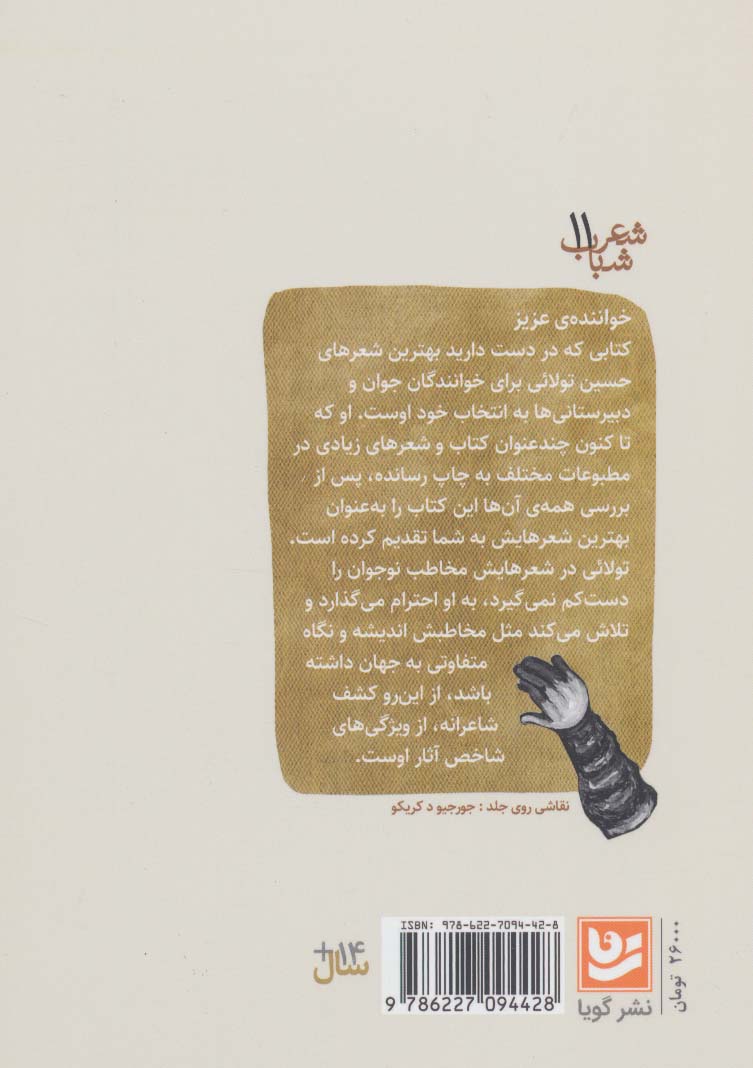 شعر
شباب ۱۱
خواننده‌ی عزیز
کتابی که در دست دارید بهترین شعرهای
حسین تولائی برای خوانندگان جوان و
دبیرستانی‌ها به انتخاب خود اوست. او که
تا کنون چندعنوان کتاب و شعرهای زیادی در
مطبوعات مختلف به چاپ رسانده، پس از
بررسی همه‌ی آن‌ها این کتاب را به‌عنوان
بهترین شعرهایش به شما تقدیم کرده است.
تولائی در شعرهایش مخاطب نوجوان را
دست‌کم نمی‌گیرد، به او احترام می‌گذارد و
تلاش می‌کند مثل مخاطبش اندیشه و نگاه
متفاوتی به جهان داشته
باشد، از این‌رو کشف
شاعرانه، از ویژگی‌های
شاخص آثار اوست.
نقاشی روی جلد : جورجیو د کریکو
+۱۴
سال
ISBN: 978-622-7094-42-8
9 786227 094428
نشر گویا
۲۶۰۰۰ تومان